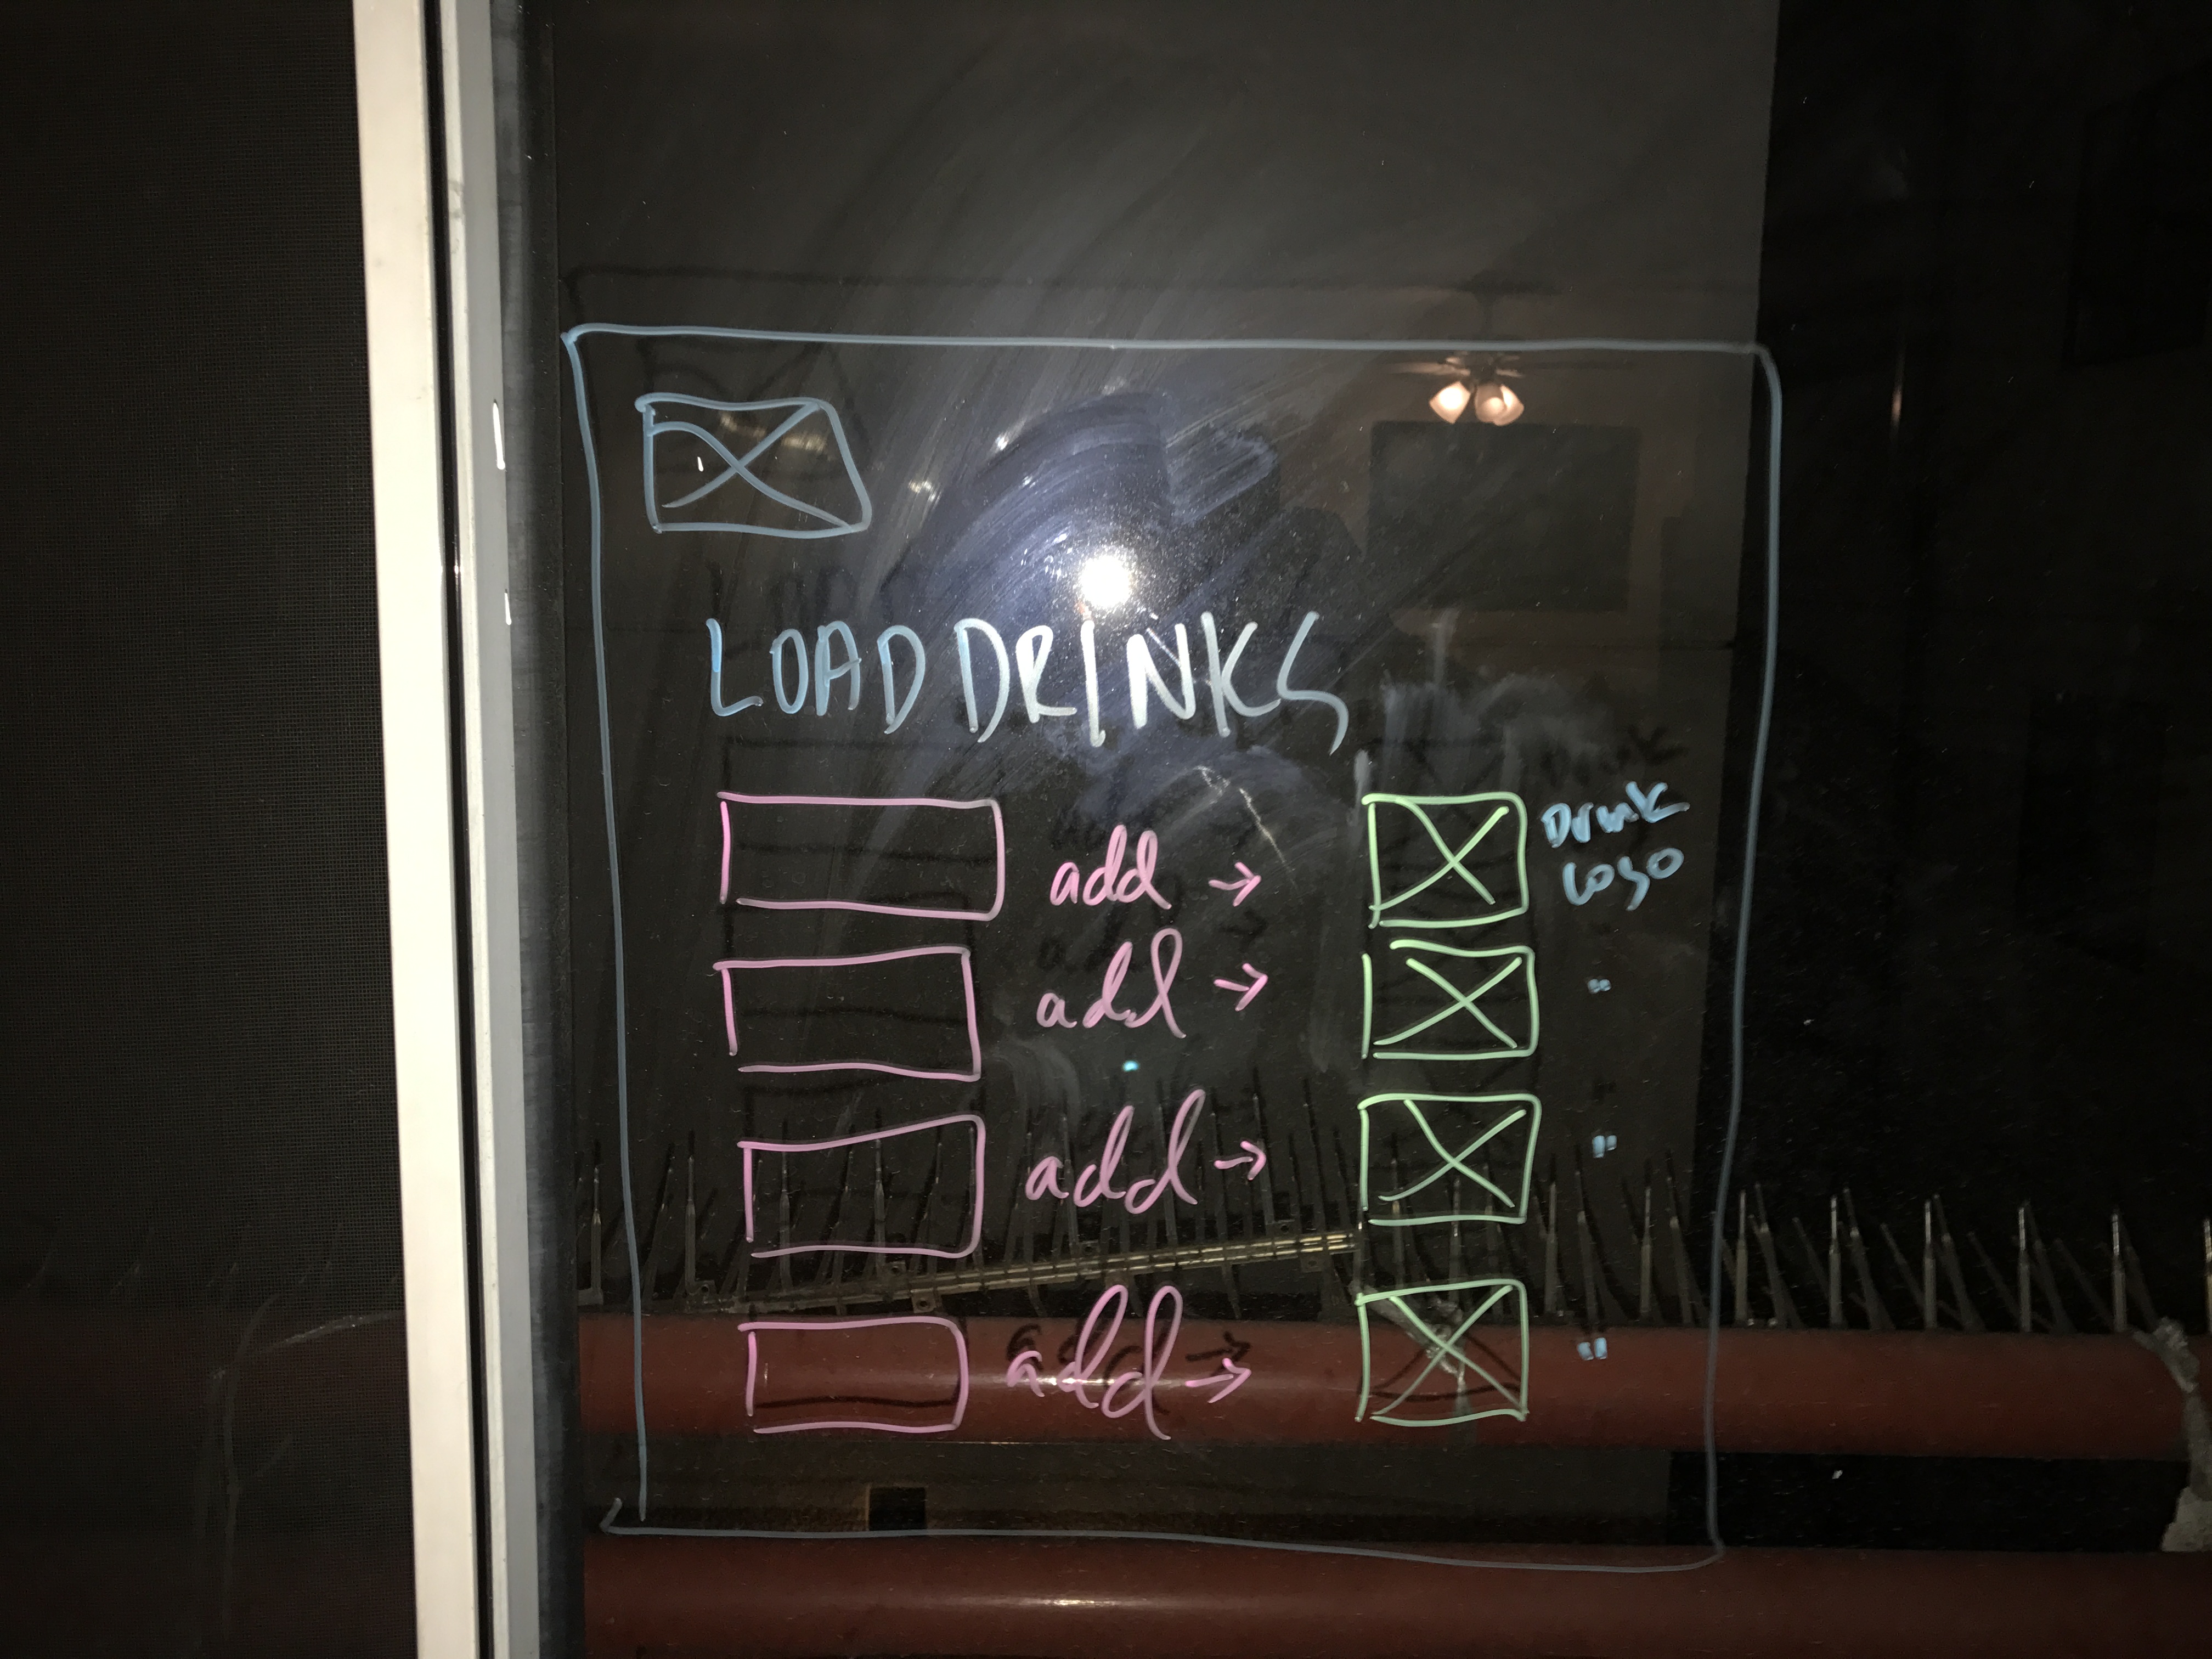 LOAD DRINKS
add → Drink
Logo
add → "
add → "
add → "